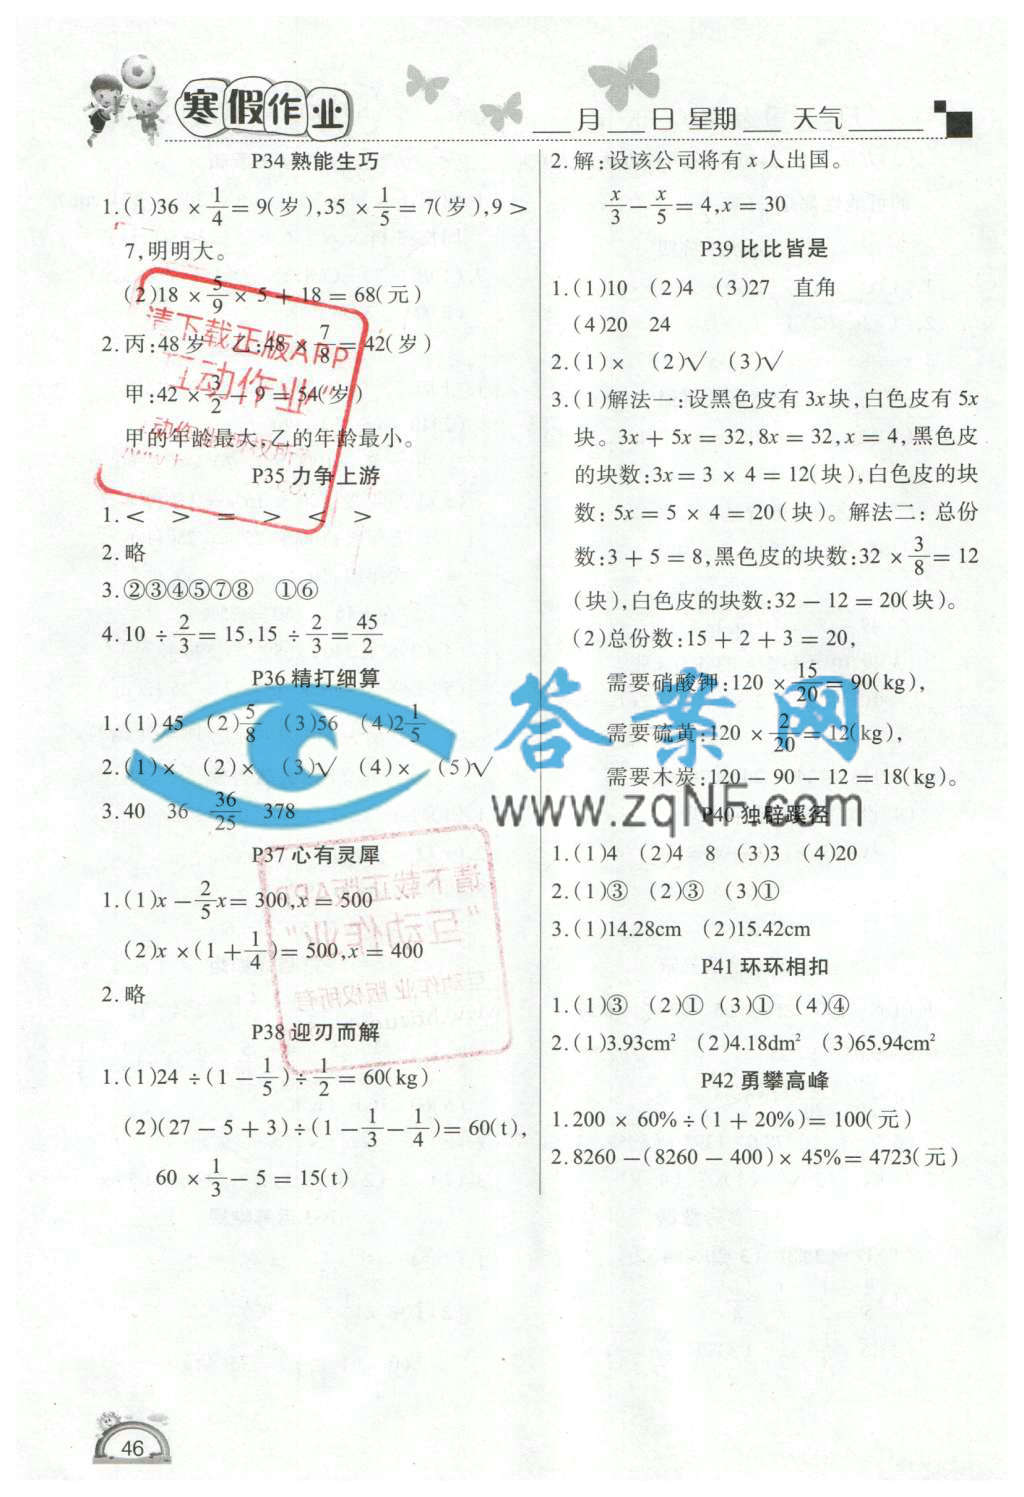 寒假作业
___月___日 星期___ 天气_____
P34 熟能生巧
1.(1)36 × 1/4 = 9(岁),35 × 1/5 = 7(岁),9 >
7,明明大。
(2)18 × 5/9 × 5 + 18 = 68(元)
2.丙:48岁 乙:48 × 7/8 = 42(岁)
甲:42 × 3/2 - 9 = 54(岁)
甲的年龄最大,乙的年龄最小。
P35 力争上游
1.< > = > < >
2.略
3.②③④⑤⑦⑧ ①⑥
4.10 ÷ 2/3 = 15,15 ÷ 2/3 = 45/2
P36 精打细算
1.(1)45 (2)5/8 (3)56 (4)2 1/5
2.(1)× (2)× (3)√ (4)× (5)√
3.40 36 36/25 378
P37 心有灵犀
1.(1)x - 2/5 x = 300,x = 500
(2)x ×(1 + 1/4)= 500,x = 400
2.略
P38 迎刃而解
1.(1)24 ÷(1 - 1/5)÷ 1/2 = 60(kg)
(2)(27 - 5 + 3)÷(1 - 1/3 - 1/4)= 60(t),
60 × 1/3 - 5 = 15(t)
2.解:设该公司将有 x 人出国。
x/3 - x/5 = 4,x = 30
P39 比比皆是
1.(1)10 (2)4 (3)27 直角
(4)20 24
2.(1)× (2)√ (3)√
3.(1)解法一:设黑色皮有 3x块,白色皮有 5x
块。3x + 5x = 32,8x = 32,x = 4,黑色皮
的块数:3x = 3 × 4 = 12(块),白色皮的块
数: 5x = 5 × 4 = 20(块)。解法二: 总份
数:3 + 5 = 8,黑色皮的块数:32 × 3/8 = 12
(块),白色皮的块数:32 - 12 = 20(块)。
(2)总份数:15 + 2 + 3 = 20,
需要硝酸钾:120 × 15/20 = 90(kg),
需要硫黄:120 × 2/20 = 12(kg),
需要木炭:120 - 90 - 12 = 18(kg)。
P40 独辟蹊径
1.(1)4 (2)4 8 (3)3 (4)20
2.(1)③ (2)③ (3)①
3.(1)14.28cm (2)15.42cm
P41 环环相扣
1.(1)③ (2)① (3)① (4)④
2.(1)3.93cm² (2)4.18dm² (3)65.94cm²
P42 勇攀高峰
1.200 × 60% ÷(1 + 20%)= 100(元)
2.8260 -(8260 - 400)× 45% = 4723(元)
请下载正版APP
互动作业"
请下载正版APP
"互动作业"
互动作业 版权所有
答案网
www.zqNF.com
46